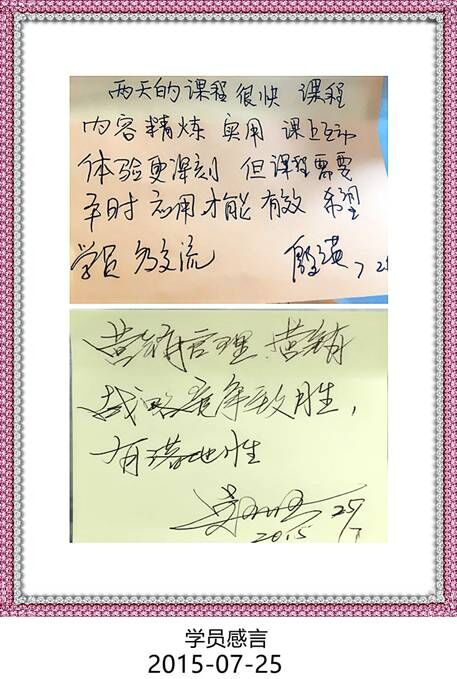 两天的课程很快 课程
内容精炼 实用 课上互动
体验更深刻 但课程需要
平时应用才能有效 希望
学员多交流 殷英 7 2
营销管理、营销
战略竞争致胜,
有落地性
2015 25/7
学员感言
2015-07-25